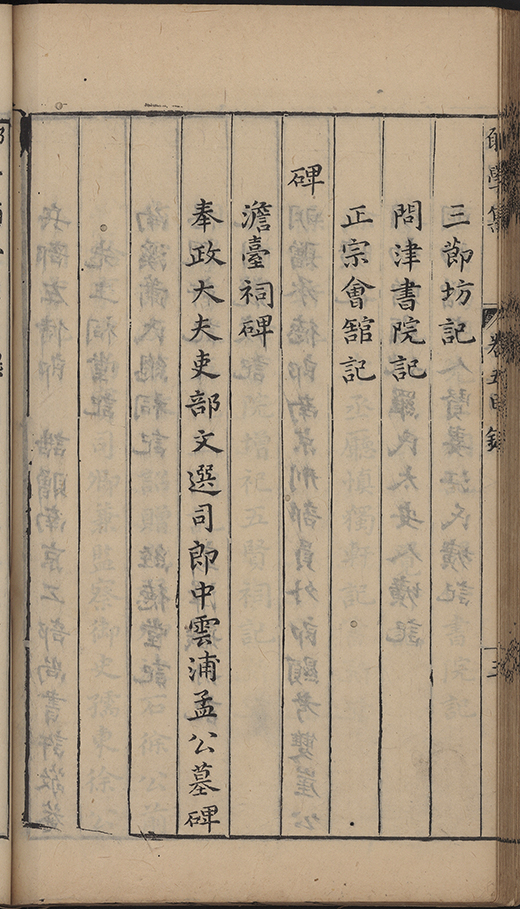 三節坊記
問津書院記
正宗會舘記
碑
澹臺祠碑
奉政大夫吏部文選司郎中雲浦孟公墓碑
卷五目錄
三